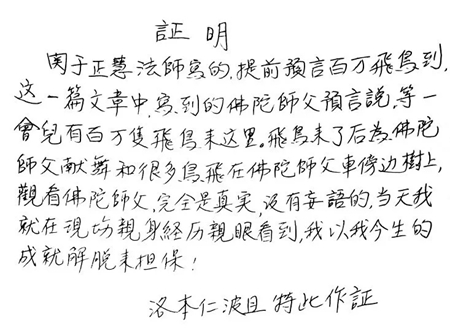 証明
関于正慧法師寫的,提前預言百万飛鳥到,
这一篇文章中,寫到的佛陀師父預言說,等一
會兒有百万隻飛鳥来这里。飛鳥来了后為佛陀
師父献舞和很多鳥飛在佛陀師父車傍边樹上,
觀看佛陀師父,完全是真实,没有妄語的,当天我
就在現場親身经历親眼看到,我以我今生的
成就解脱来担保!
洛本仁波且 特此作証